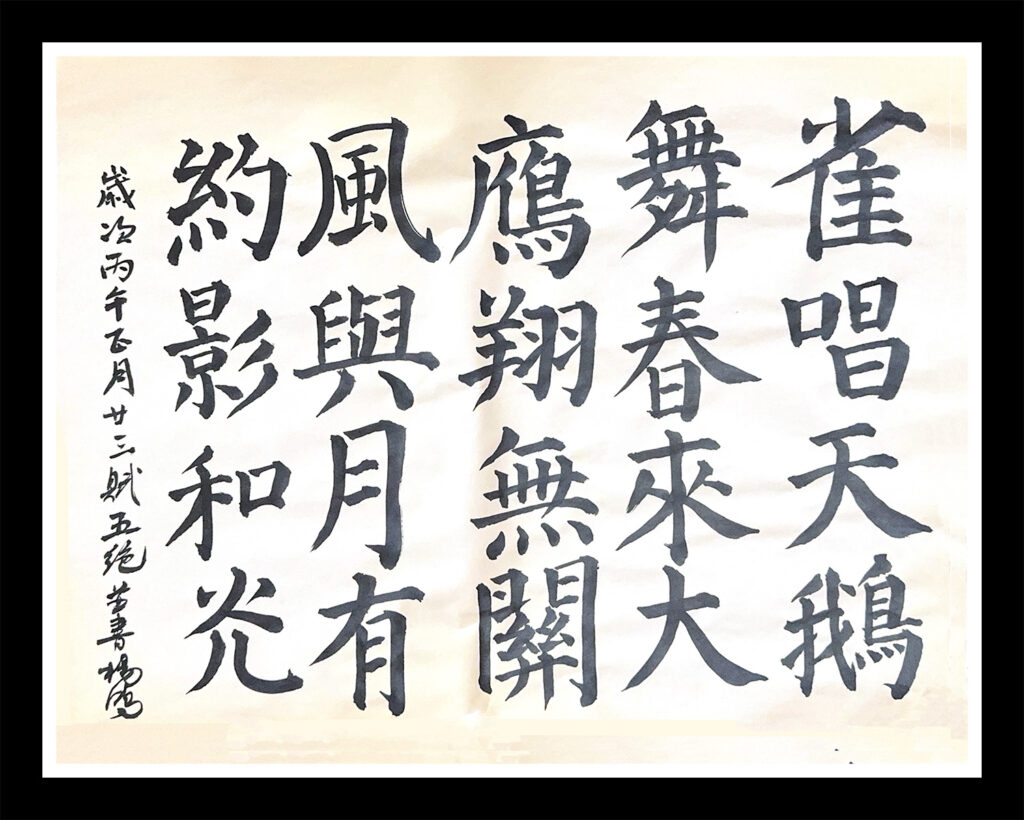 雀唱天鵝
舞春來大
鷹翔無關
風與月有
約影和光
歲次丙午正月廿三賦五絕並書楊鴻